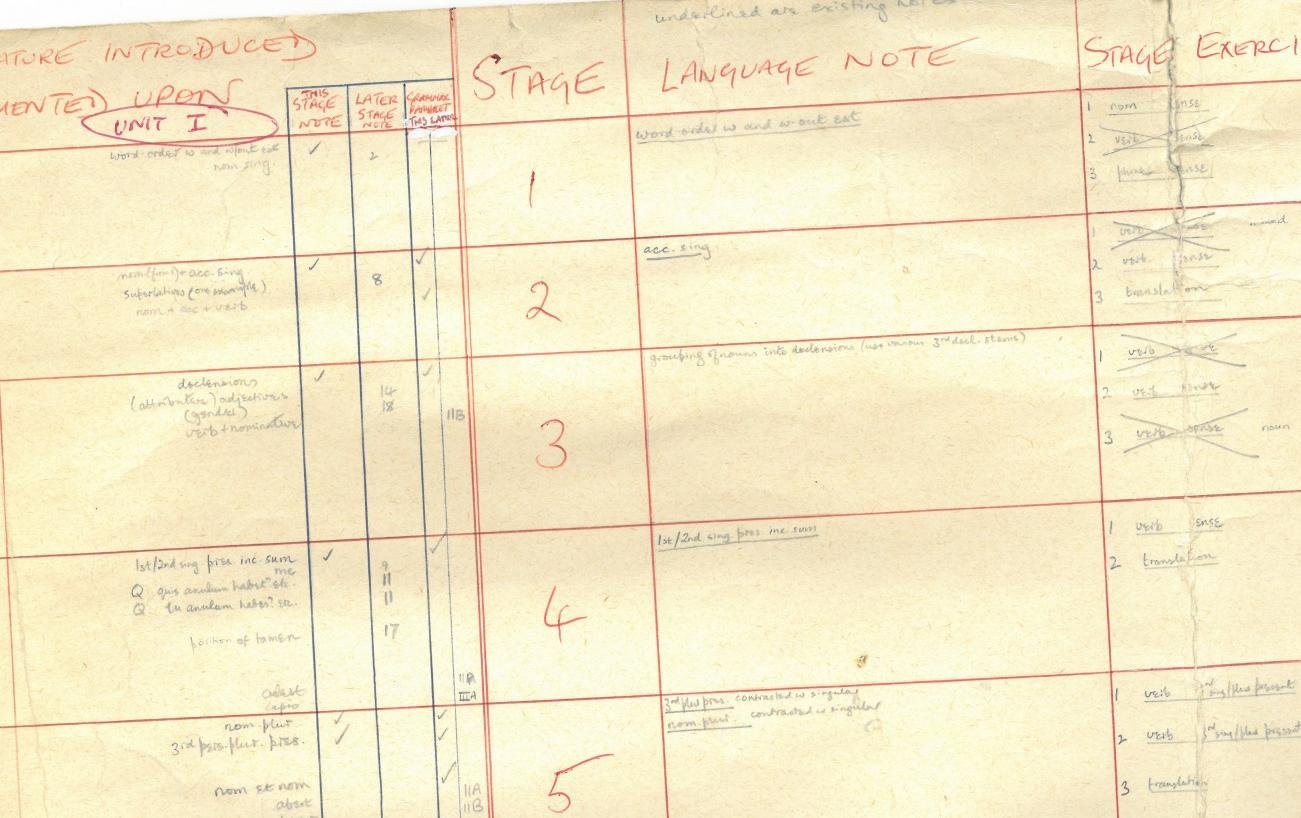 underlined are existing notes
ATURE INTRODUCED
MENTED UPON
UNIT I
THIS STAGE NOTE
LATER STAGE NOTE
GRAMMAR PAMPHLET THIS LATER
STAGE
LANGUAGE NOTE
STAGE EXERCI
word order w and w'out est
nom sing.
✓
2
1
word order w and w'out est
1 nom sense
2 verb sense
3 sense
acc. sing
✓
8
✓
superlatives (one example)
✓
nom + acc + verb
2
acc. sing.
1 verb sense
2 verb sense
3 translation
declensions
✓
✓
(attributive) adjectives
14
(gender)
18
IIB
verb + nominative
3
grouping of nouns into declensions (use various 3rd decl. stems)
1 verb
2 verb sense
3 verb sense noun
1st/2nd sing pres. inc. sum
✓
✓
me
9
Q quis anulum habet? etc.
11
Q tu anulum habes? etc.
11
position of tamen
17
adest
IIA
capio
IIIA
4
1st/2nd sing pres. inc. sum
1 verb sense
2 translation
nom. plur.
✓
✓
3rd pers. plur. pres.
✓
✓
nom et nom
✓
IIA
abest
IIB
5
3rd plur pres. contrasted w singular
nom. plur. contrasted w singular
1 verb 3rd sing/plur present
2 verb 3rd sing/plur present
3 translation